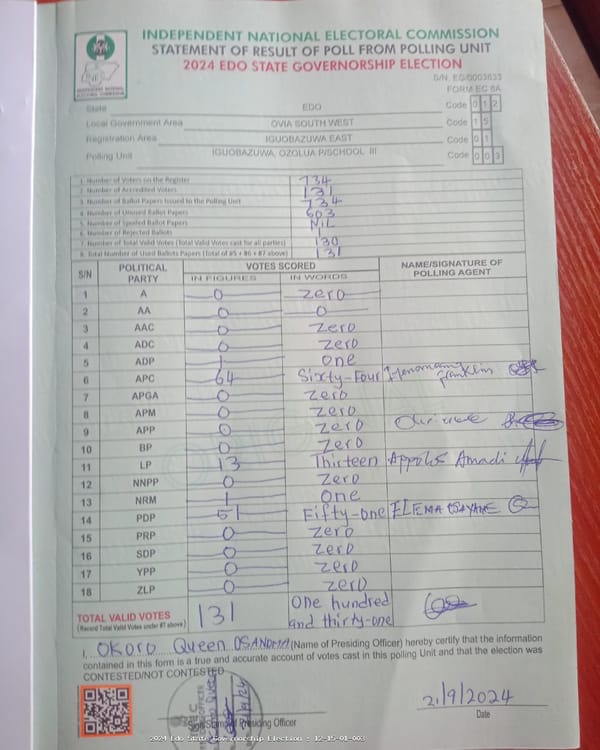 INDEPENDENT NATIONAL ELECTORAL COMMISSION
STATEMENT OF RESULT OF POLL FROM POLLING UNIT
2024 EDO STATE GOVERNORSHIP ELECTION
S/N. EG/0003633
FORM EC 8A
State EDO Code 0 1 2
Local Government Area OVIA SOUTH WEST Code 1 5
Registration Area IGUOBAZUWA EAST Code 0 1
Polling Unit IGUOBAZUWA, OZOLUA P/SCHOOL III Code 0 0 3
1. Number of Voters on the Register 734
2. Number of Accredited Voters 131
3. Number of Ballot Papers Issued to the Polling Unit 734
4. Number of Unused Ballot Papers 603
5. Number of Spoiled Ballot Papers NIL
6. Number of Rejected Ballots 1
7. Number of Total Valid Votes (Total Valid Votes cast for all parties) 130
8. Total Number of Used Ballots Papers (Total of #5 + #6 + #7 above) 131
S/N POLITICAL PARTY VOTES SCORED NAME/SIGNATURE OF POLLING AGENT
IN FIGURES IN WORDS
1 A 0 Zero
2 AA 0 0
3 AAC 0 Zero
4 ADC 0 Zero
5 ADP 1 One
6 APC 64 Sixty-Four Franklin
7 APGA 0 Zero
8 APM 0 Zero
9 APP 0 Zero
10 BP 0 Zero
11 LP 13 Thirteen Appolos Amadi
12 NNPP 0 Zero
13 NRM 1 One
14 PDP 51 Fifty-One
15 PRP 0 Zero
16 SDP 0 Zero
17 YPP 0 Zero
18 ZLP 0 Zero
TOTAL VALID VOTES 131 One hundred and thirty-one
(Record Total Valid Votes under #7 above)
I, OKORO Queen (Name of Presiding Officer) hereby certify that the information
contained in this form is a true and accurate account of votes cast in this polling Unit and that the election was
CONTESTED/NOT CONTESTED
21/9/2024
Presiding Officer
Date
2024 Edo State Governorship Election : 12-15-01-003